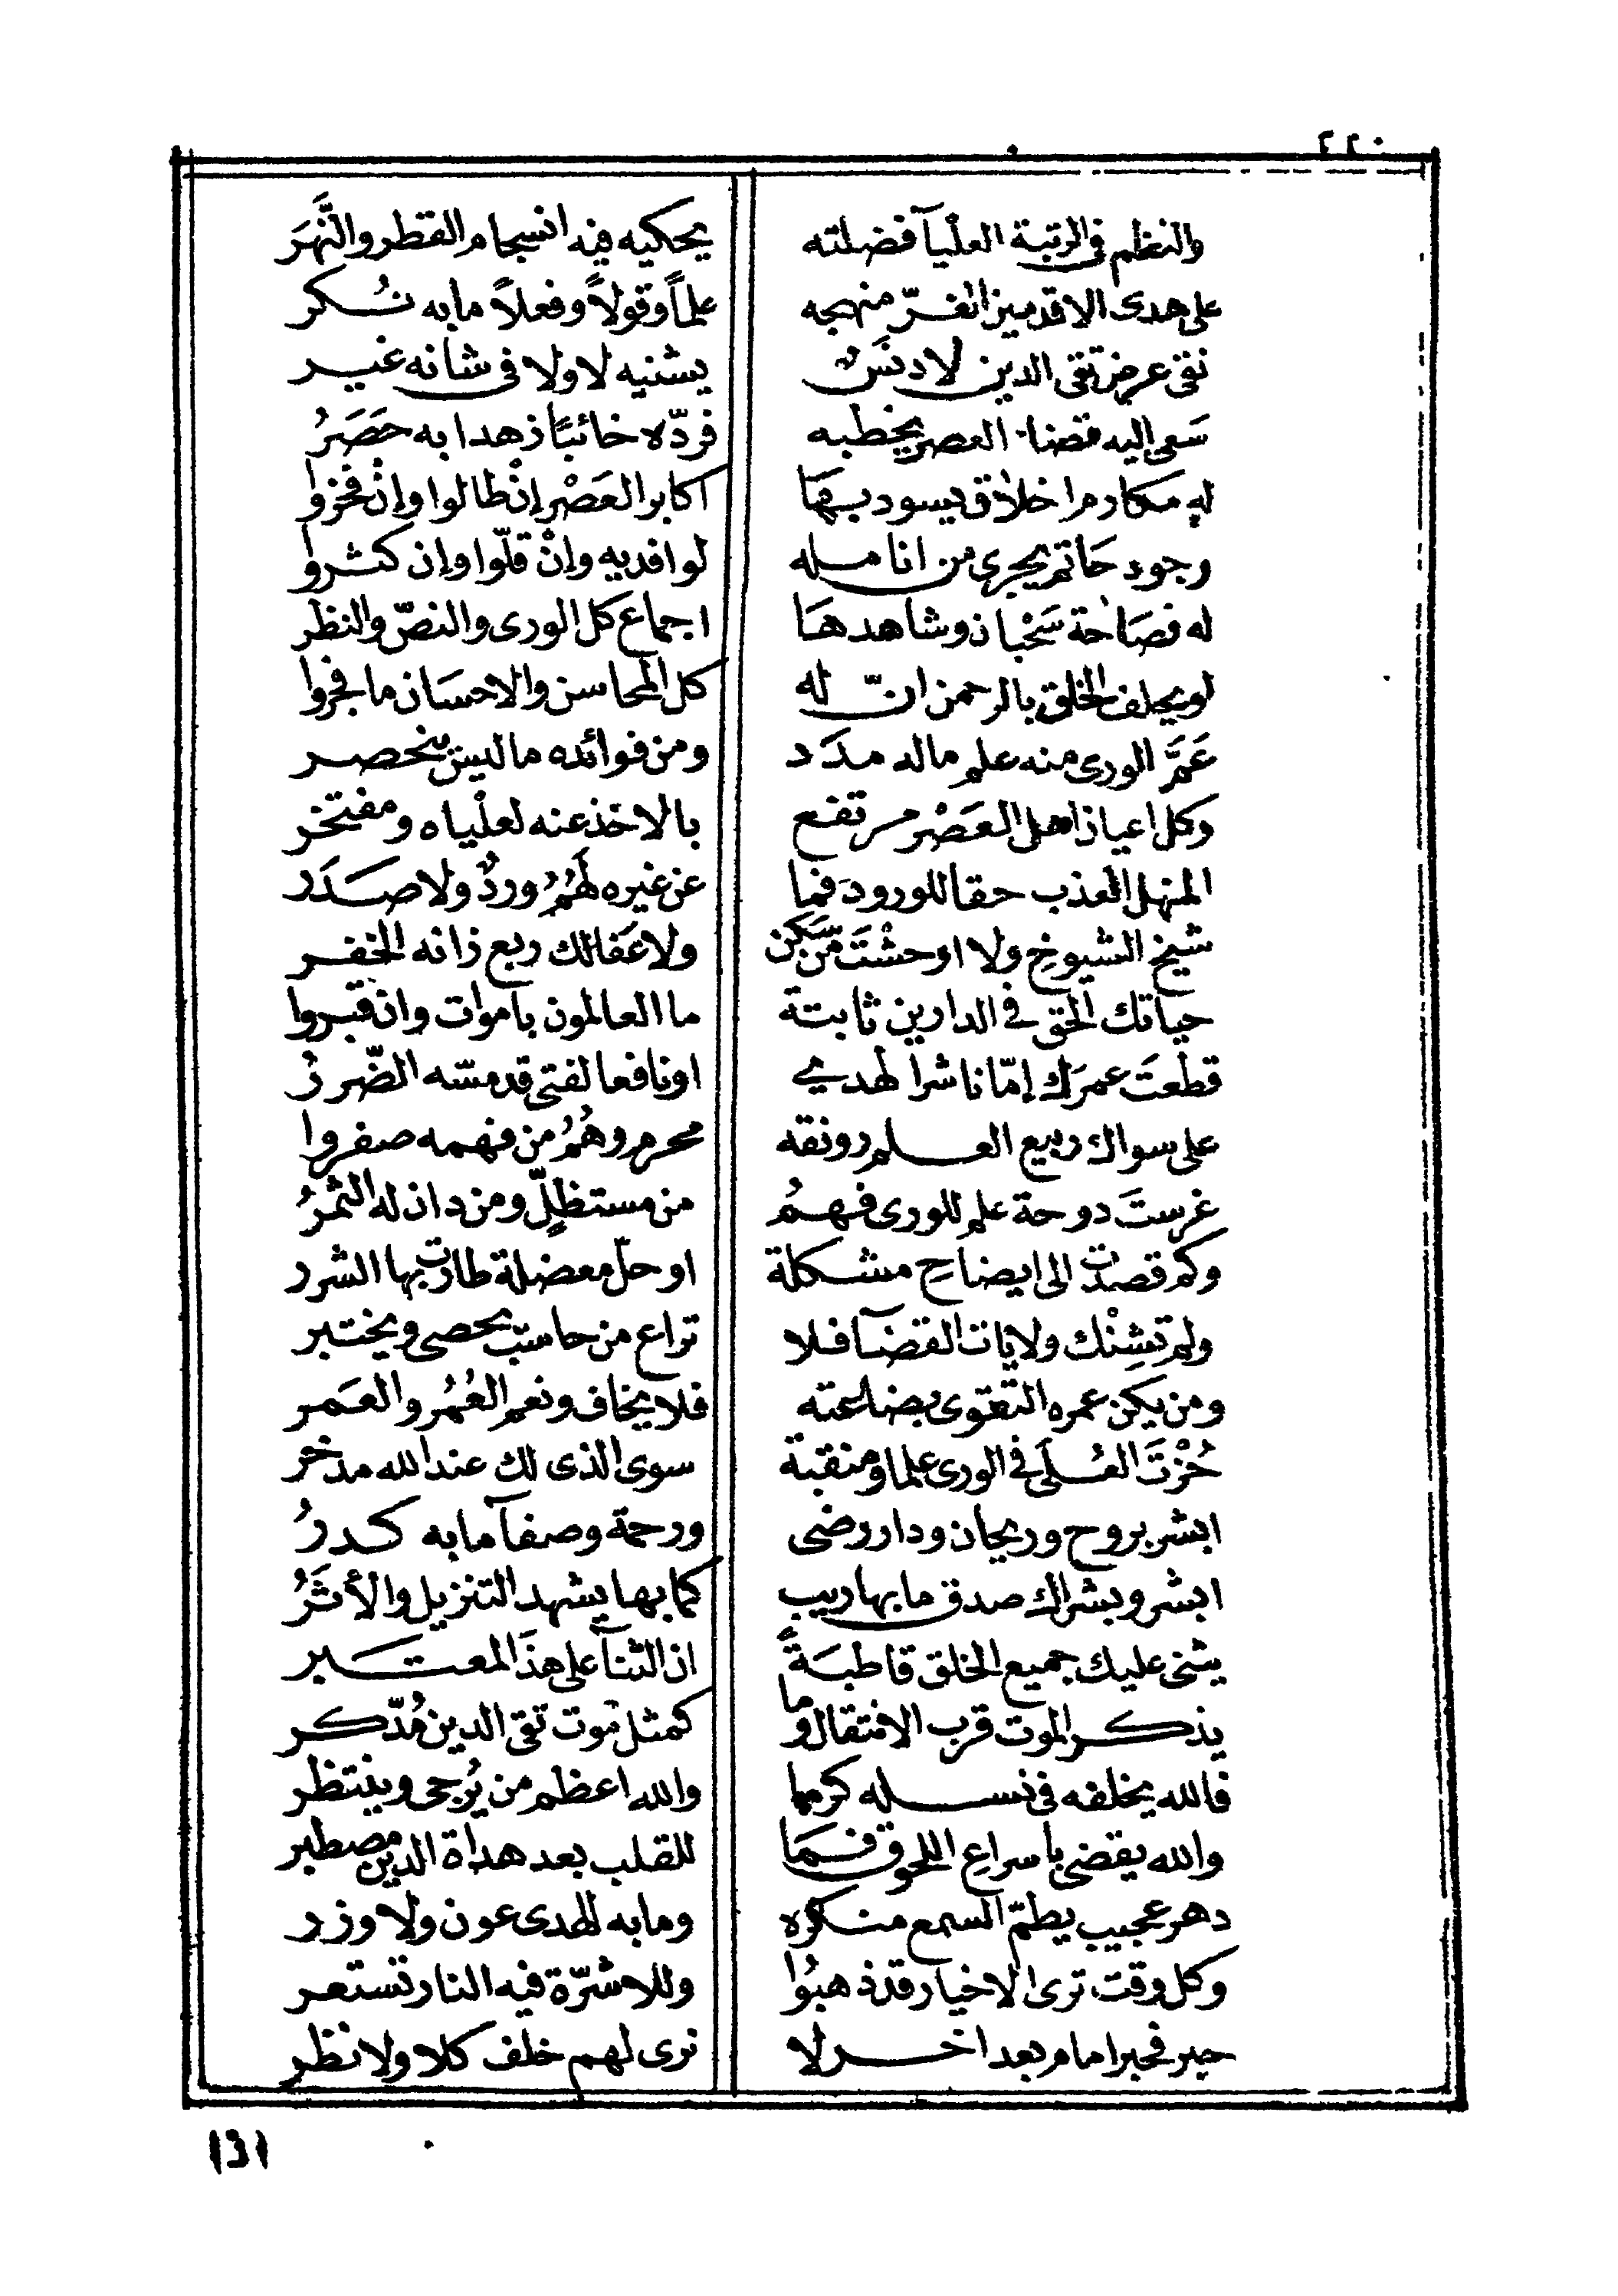 ٢٢٠
والنظم في الرتبة العليآ فضلته يحكيه فيه انسجام القطر والنَّهَر
على هدى الاقدمين الغرّ منهجه علماً وقولاً وفعلاً مابه نُكر
نقى عرض تقى الدين لا دنَسٌ يثنيه لا ولا في شانه غير
سَعى اليه قضاء العصر يخطبه فردّه خائبًا زهدا به حَصَرُ
له مكارم اخلاق يسود بهَا اكابر العَصْر إنْ طالوا وإنْ فخروا
وجود حَاتم يجرى من انامله لوافديه وإنْ قلّوا وإن كثروا
له فصَاحة سَحْبان وشاهدهَا اجماع كل الورى والنصّ والنظر
لو يحلف الخلق بالرحمن انّ له كل المحاسن والاحسَان ما فجروا
عَمَّ الورى منه علم ماله مدَد ومن فوائده ماليس ينحصر
وكل اعيان اهل العَصْر مرتفع بالاخذ عنه لعلْياه ومفتخر
المنهل العذب حقا للورود فما عن غيره لهُمُ وردٌ ولا صدَر
شيخ الشيوخ ولا اوحشْتَ مَن سَكن ولا عَفالك ربع زانه الخفر
حياتك الحق في الدارين ثابتة ما العالمون بأموات وان قبروا
قطعتَ عمرَك إمّا ناشرا لهدى او نافعا لفتى قد مسّه الضّررُ
على سواك ربيع العلم رونقه محرم وهُمُ من فهمه صفروا
غرستَ دوحة علم للورى فهمُ من مستظلٍّ ومن دان له الثمرُ
وكم قصدت الى ايضاحِ مشكلة او حلّ معضلة طارت بها الشرر
ولم تشِنْك ولايات القضآ فلا تراع من حاسبٍ يحصى ويختبر
ومن يكن عمره التقوى بضاعته فلا يخاف ونعم العُمُر والعَمر
حُزْتَ العُلَى في الورى علما ومنقبة سوى الذى لك عند الله مدخر
ابشر بروح وريحان ودار رضى ورحمة وصفآ مابه كدرُ
ابشر وبشراك صدق ما بها ريب كما بها يشهد التنزيل والأثَرُ
يثنى عليك جميع الخلق قاطبَةً ان الثنآ على هذَا لمعتبر
يذكر الموت قرب الانتقال وما كمثل موت تقى الدين مُدّكر
فالله يخلفه في نسله كرما والله اعظم من يُرجى وينتظر
والله يقضى بأسراعِ اللحوق فمَا للقلب بعد هداة الدين مصطبر
دهر عجيب يطمّ السمع منكره وما به للهدى عون ولا وزر
وكل وقت ترى الاخيار قد ذهبُوا وللاشرّة فيه النار تستعر
حبر فحبر امام بعد اخر لا نرى لهم خلف كلا ولا نظر
١٣١